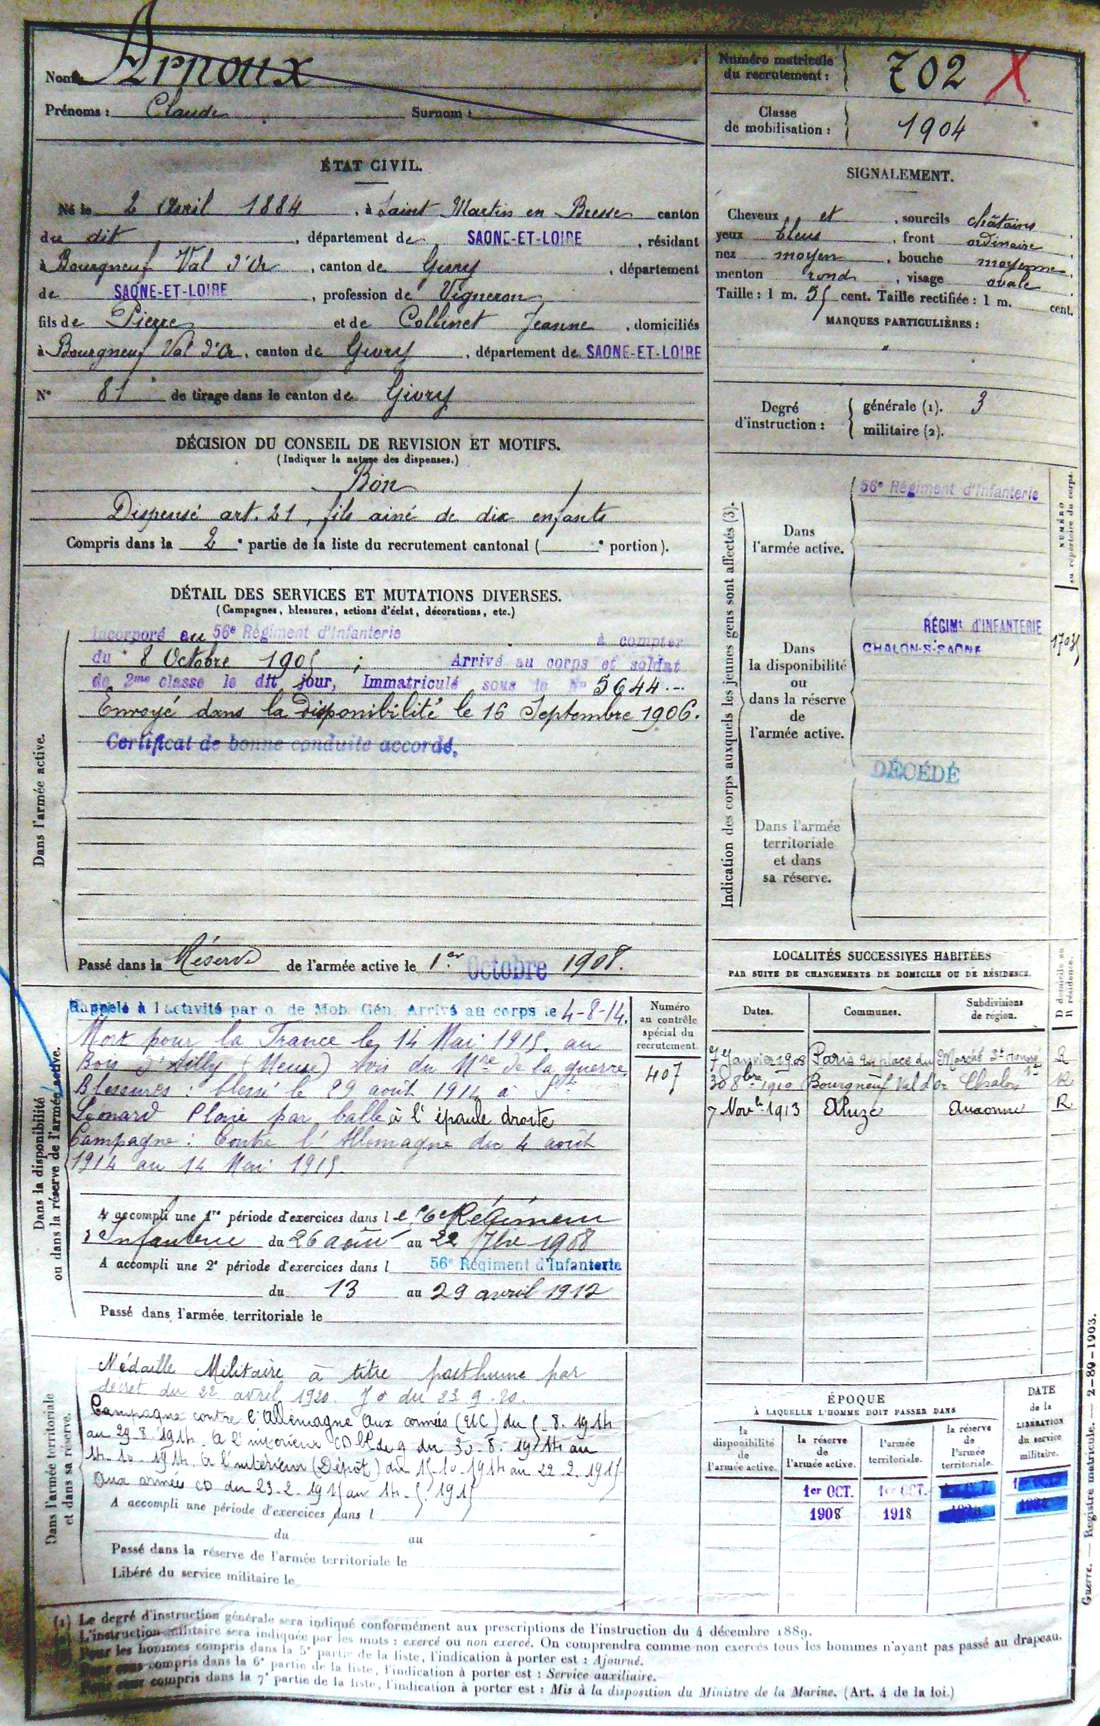 Nom : Arnoux
Prénoms : Claude Surnom :
Numéro matricule
du recrutement : 702 X
Classe
de mobilisation : 1904
ÉTAT CIVIL.
Né le 2 Avril 1884, à Saint Martin en Bresse canton
du dit, département de SAONE-ET-LOIRE, résidant
à Bourgneuf Val d'Or, canton de Givry, département
de SAONE-ET-LOIRE, profession de Vigneron
fils de Pierre et de Collinet Jeanne, domiciliés
à Bourgneuf Val d'Or, canton de Givry, département de SAONE-ET-LOIRE
N° 81 de tirage dans le canton de Givry
SIGNALEMENT.
Cheveux et, sourcils châtains
yeux bleus, front ordinaire
nez moyen, bouche moyenne
menton rond, visage ovale
Taille : 1 m. 55 cent. Taille rectifiée : 1 m. cent.
MARQUES PARTICULIÈRES :
"
Degré
d'instruction :
générale (1). 3
militaire (2).
DÉCISION DU CONSEIL DE REVISION ET MOTIFS.
(Indiquer la nature des dispenses.)
Bon
Dispensé art. 21, fils ainé de dix enfants
Compris dans la 2e partie de la liste du recrutement cantonal ( e portion).
DÉTAIL DES SERVICES ET MUTATIONS DIVERSES.
(Campagnes, blessures, actions d'éclat, décorations, etc.)
Dans l'armée active.
Incorporé au 56e Régiment d'Infanterie à compter
du 8 Octobre 1905 ; Arrivé au corps et soldat
de 2me classe le dit jour, Immatriculé sous le No 5644
Envoyé dans la Disponibilité le 16 Septembre 1906.
Certificat de bonne conduite accordé.
Passé dans la Réserve de l'armée active le 1er Octobre 1908.
Indication des corps auxquels les jeunes gens sont affectés (3).
NUMÉRO
au répertoire du corps.
Dans
l'armée active.
56e Régiment d'Infanterie
Dans
la disponibilité
ou
dans la réserve
de
l'armée active.
RÉGIMt D'INFANTERIE
CHALON-S-SAONE
DÉCÉDÉ
Dans l'armée
territoriale
et dans
sa réserve.
Dans la disponibilité
ou dans la réserve de l'armée active.
Rappelé à l'activité par o. de Mob. Gén. Arrivé au corps le 4-8-14.
Mort pour la France le 14 Mai 1915. au
Bois d'Ailly (Meuse) Avis du Mre de la guerre
Blessures : blessé le 29 août 1914 à St
Léonard Plaie par balle à l'épaule droite
Campagne : Contre l'Allemagne du 4 août
1914 au 14 Mai 1915.
Numéro
au contrôle
spécial du
recrutement.
407
A accompli une 1re période d'exercices dans le 56e Régiment
d'Infanterie du 26 août au 22 7bre 1908
A accompli une 2e période d'exercices dans l 56e Régiment d'Infanterie
du 13 au 29 avril 1912
Passé dans l'armée territoriale le
LOCALITÉS SUCCESSIVES HABITÉES
PAR SUITE DE CHANGEMENTS DE DOMICILE OU DE RÉSIDENCE.
Dates. Communes. Subdivisions
de région. D domicile ou
R résidence.
7 Janvier 1908 Paris place du Marché St Honoré R
30 8bre 1910 Bourgneuf Val d'Or Chalon R
7 Nov. 1913 Aluze Auxonne R
Dans l'armée territoriale
et dans sa réserve.
Médaille Militaire à titre posthume par
décret du 22 avril 1920 J O du 23.9.20.
Campagne contre l'Allemagne aux armées du 5.8.1914
au 29.8.1914. à l'intérieur du 30-8-1914 au
14-10-1914. à l'intérieur (Dépôt) du 15-10-1914 au 22-2-1915
Aux armées CD du 23-2-1915 au 14-5-1915
A accompli une période d'exercices dans l
du au
Passé dans la réserve de l'armée territoriale le
Libéré du service militaire le
ÉPOQUE
À LAQUELLE L'HOMME DOIT PASSER DANS
DATE
de la
LIBÉRATION
du service
militaire.
la
disponibilité
de
l'armée active.
la réserve
de
l'armée active.
l'armée
territoriale.
la réserve
de
l'armée
territoriale.
1er OCT. 1er OCT.
1908 1918
Guerre. — Registre matricule. — 2-89-1903.
(1) Le degré d'instruction générale sera indiqué conformément aux prescriptions de l'instruction du 4 décembre 1889.
L'instruction militaire sera indiquée par les mots : exercé ou non exercé. On comprendra comme non exercés tous les hommes n'ayant pas passé au drapeau.
Pour les hommes compris dans la 5e partie de la liste, l'indication à porter est : Ajourné.
Pour ceux compris dans la 6e partie de la liste, l'indication à porter est : Service auxiliaire.
Pour ceux compris dans la 7e partie de la liste, l'indication à porter est : Mis à la disposition du Ministre de la Marine. (Art. 4 de la loi.)